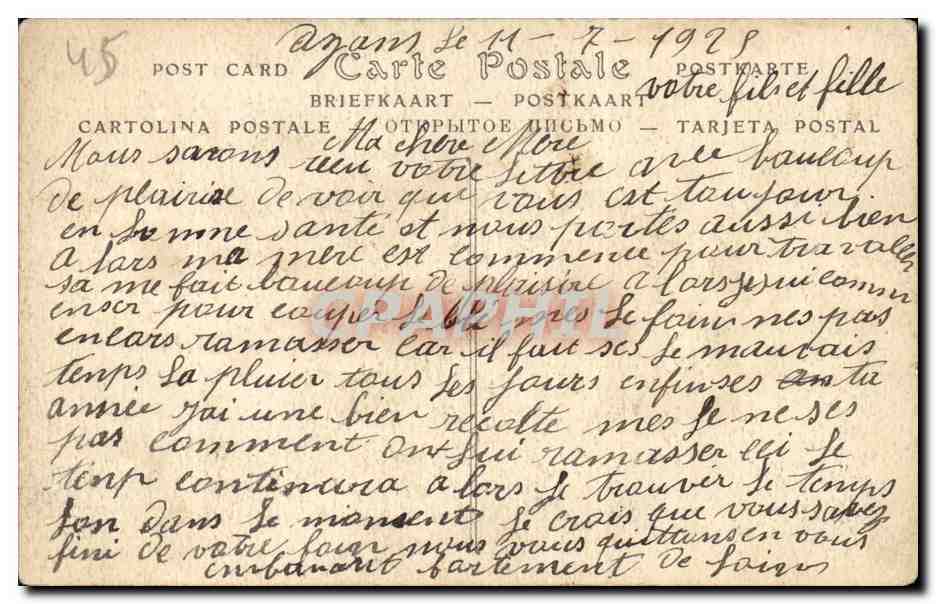 45
Ayans le 11 - 7 - 1925
POST CARD Carte Postale POSTKARTE
votre fils et fille
BRIEFKAART — POSTKAART
CARTOLINA POSTALE / ОТКРЫТОЕ ПИСЬМО — TARJETA POSTAL
Ma chere Mere
Nous savons reeu votre lettre avec baucoup
de plairire de voir que vous est toujour
en bonne santé et nous portes aussi bien
alors ma mere est commence pour travaller
sa me fait baucoup de plaisire alors je sui comm
enser pour couper le blé mes le foin nes pas
encors ramasser car il fait ses le mauvais
temps sa pluier tous les jours enfin ses ta
année jai une bien recolte mes je ne ses
pas comment ont lui ramasser cei le
temp continura alors je trouver le temps
lon dans le moment je crois que vous savez
fini de votre foin nous vous quittans en vous
embarant fortement de loins
CPAPHIL